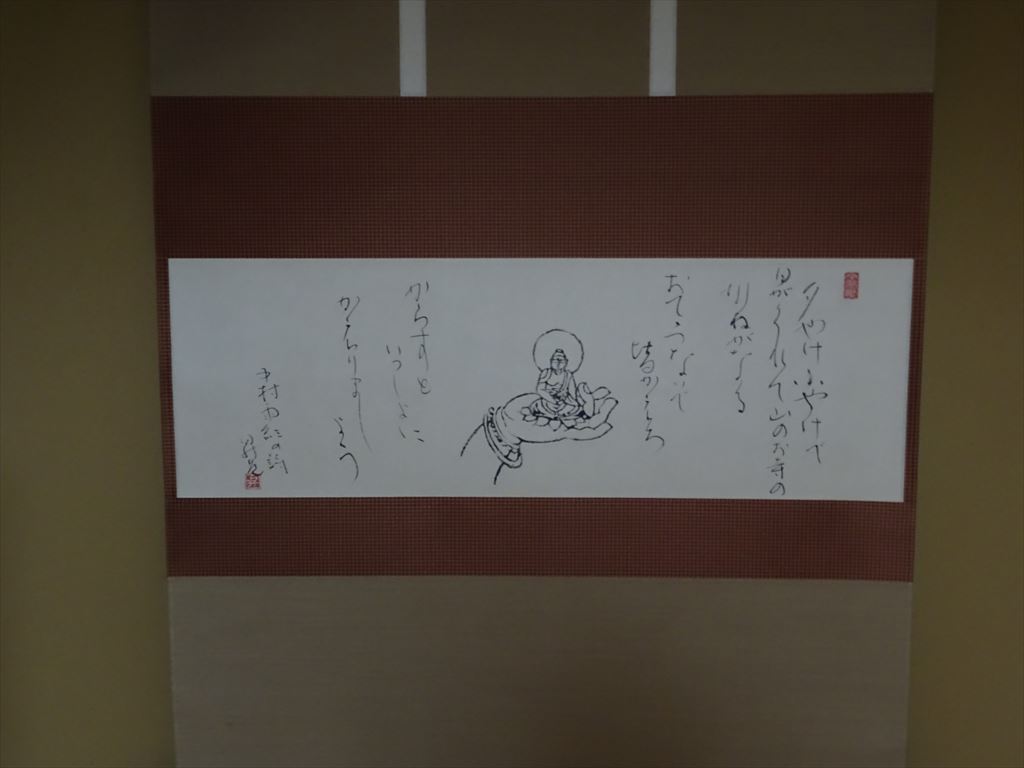 夕やけ小やけで
日がくれて山のお寺の
かねがなる
おててつないで
皆かえろ
からすと
いっしょに
かえりましょう
中村雨紅の詩